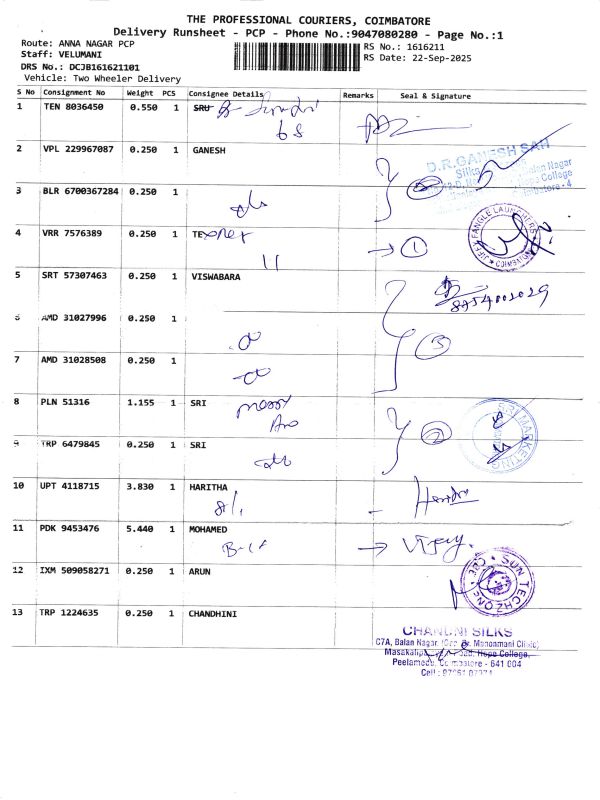 THE PROFESSIONAL COURIERS, COIMBATORE
Delivery Runsheet - PCP - Phone No.:9047080280 - Page No.:1
Route: ANNA NAGAR PCP RS No.: 1616211
Staff: VELUMANI RS Date: 22-Sep-2025
DRS No.: DCJB161621101
Vehicle: Two Wheeler Delivery
S No Consignment No Weight PCS Consignee Details Remarks Seal & Signature
1 TEN 8036450 0.550 1 SRU
68
2 VPL 229967087 0.250 1 GANESH
D.R.GANESH SAH
Silks
3 BLR 6700367284 0.250 1
4 VRR 7576389 0.250 1 TE
11
1
FANGLE LAUNCHERS
COIMBATORE
5 SRT 57307463 0.250 1 VISWABARA
8754002029
6 AMD 31027996 0.250 1
3
7 AMD 31028508 0.250 1
8 PLN 51316 1.155 1 SRI
2
SRI MARKETING
9 TRP 6479845 0.250 1 SRI
10 UPT 4118715 3.830 1 HARITHA
11 PDK 9453476 5.440 1 MOHAMED
Vijay.
12 IXM 509058271 0.250 1 ARUN
SUN TECHZONE
CBE
13 TRP 1224635 0.250 1 CHANDHINI
CHANDNI SILKS
C7A, Balan Nagar, (Opp. Dr. Manonmani Clinic)
Masakalipalayam Road, Hope College,
Peelamedu, Coimbatore - 641 004
Cell :